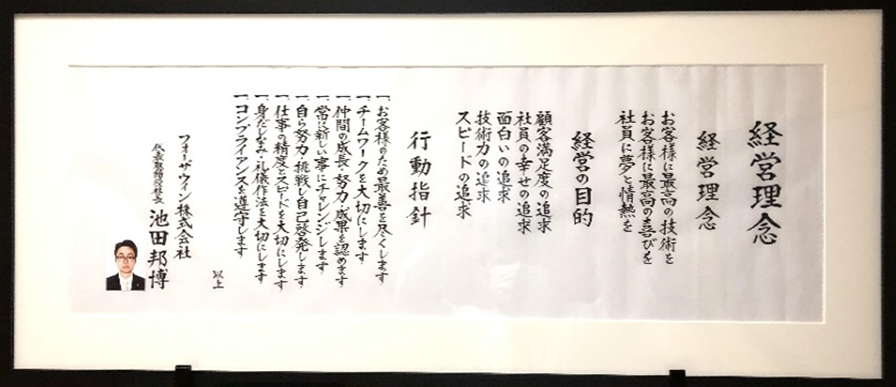 経営理念
経営理念
お客様に最高の技術を
お客様に最高の喜びを
社員に夢と情熱を
経営の目的
顧客満足度の追求
社員の幸せの追求
面白いの追求
技術力の追求
スピードの追求
行動指針
一、お客様のため最善を尽くします
一、チームワークを大切にします
一、仲間の成長・努力・成果を認めます
一、常に新しい事にチャレンジします
一、自ら努力・挑戦し自己啓発します
一、仕事の精度とスピードを大切にします
一、身だしなみ・礼儀作法を大切にします
一、コンプライアンスを遵守します
以上
フォーザウィン株式会社
代表取締役社長 池田邦博